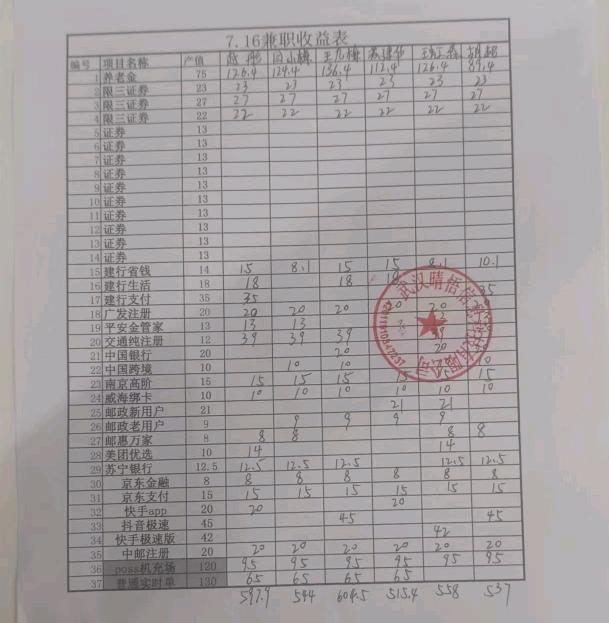 7.16兼职收益表
编号 项目名称 产值
1 养老金 75 126.4 124.4 136.4 112.4 126.4 89.4
2 限三证券 23 23 23 23 23 23 23
3 限三证券 27 27 27 27 27 27 27
4 限三证券 22 22 22 22 22 22 22
5 证券 13
6 证券 13
7 证券 13
8 证券 13
9 证券 13
10 证券 13
11 证券 13
12 证券 13
13 证券 13
14 证券 13
15 建行省钱 14 15 8.1 15 15 8.1 10.1
16 建行生活 18 18 18
17 建行支付 35 35 35
18 广发注册 20 20 20 20 20 20
19 平安金管家 13 13 13
20 交通纯注册 12 39 39 39
21 中国银行 20 20 20
22 中国跨境 10 10 10 10
23 南京高阶 15 15 15 15 15 15
24 威海绑卡 10 10 10 10 10 10 10
25 邮政新用户 21 21 21
26 邮政老用户 9 9 9 9 9
27 邮惠万家 8 8 8 8 8
28 美团优选 10 14 14
29 苏宁银行 12.5 12.5 12.5 12.5 12.5 12.5
30 京东金融 8 8 8 8 8 8 8
31 京东支付 15 15 15 15 15 15 15
32 快手app 20 20 20
33 抖音极速 45 45 45
34 快手极速版 42 42
35 中邮注册 20 20 20 20 20 20 20
36 poss机充场 120 95 95 95 95 95 95
37 普通实时单 130 65 65 65 65
597.9 544 604.5 515.4 558 537
武汉晴悟信